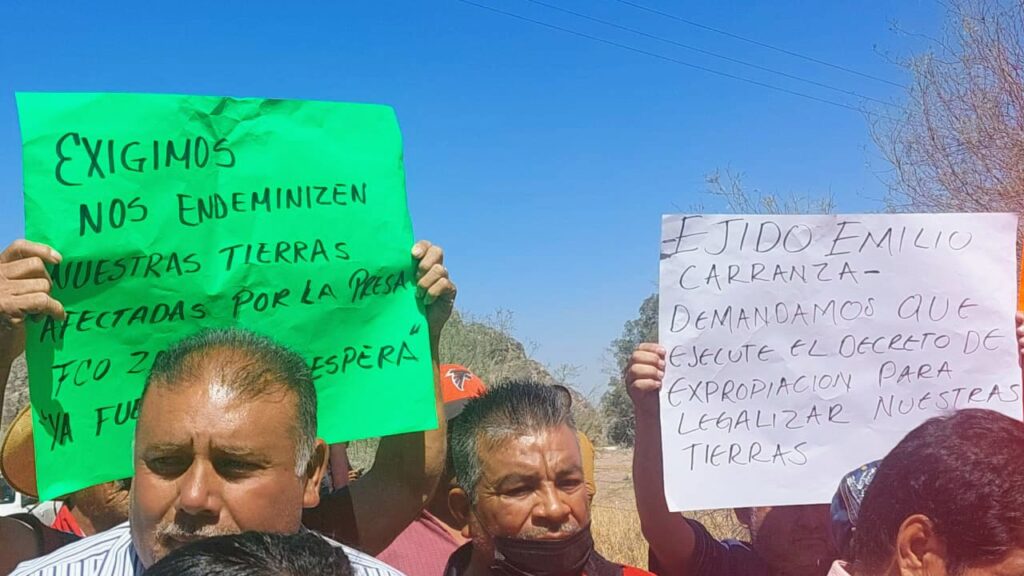 EXIGIMOS
NOS ENDEMINIZEN
NUESTRAS TIERRAS
AFECTADAS POR LA PRESA
FCO ESPERA"
"YA
EJIDO EMILIO
CARRANZA-
DEMANDAMOS QUE
EJECUTE EL DECRETO DE
EXPROPIACION PARA
LEGALIZAR NUESTRAS
TIERRAS